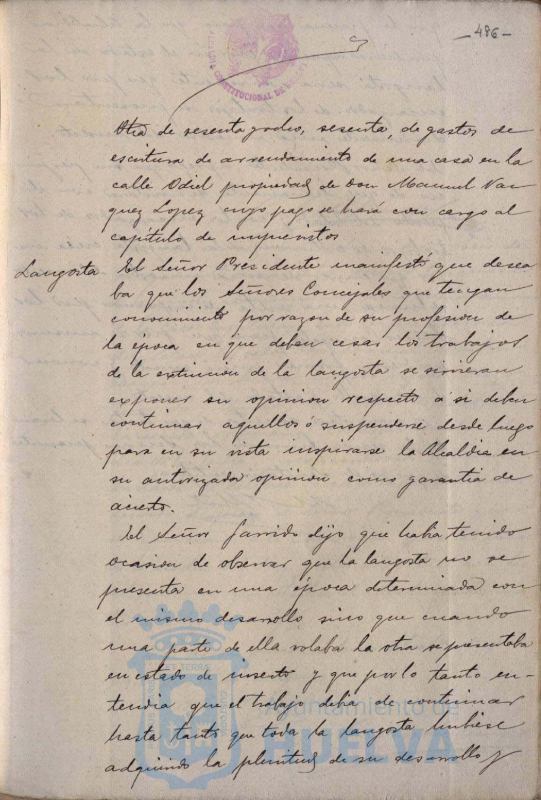 - 486 -
CONSTITUCIONAL DE
Otra de sesenta y ocho, sesenta, de gastos de
escritura de arrendamiento de una casa en la
calle Odiel propiedad de Don Manuel Vaz
quez Lopez cuyo pago se hará con cargo al
capítulo de imprevistos
Langosta
El Señor Presidente manifestó que desea
ba que los Señores Concejales que tengan
conocimiento por razon de su profesion de
la época en que deben cesar los trabajos
de la extincion de la langosta se sirvieran
exponer su opinion respecto á si deben
continuar aquellos ó suspenderse desde luego
para en su vista inspirarse la Alcaldia en
su autorizada opinion como garantia de
acierto.
El Señor Garrido dijo que habia tenido
ocasion de observar que la langosta no se
presenta en una época determinada con
el mismo desarrollo sino que cuando
una parte de ella volaba la otra se presentaba
en estado de insecto y que por lo tanto en-
tendia que el trabajo debia de continuar
hasta tanto que toda la langosta hubiese
adquirido la plenitud de su desarrollo y
Ayuntamiento de
HUELVA